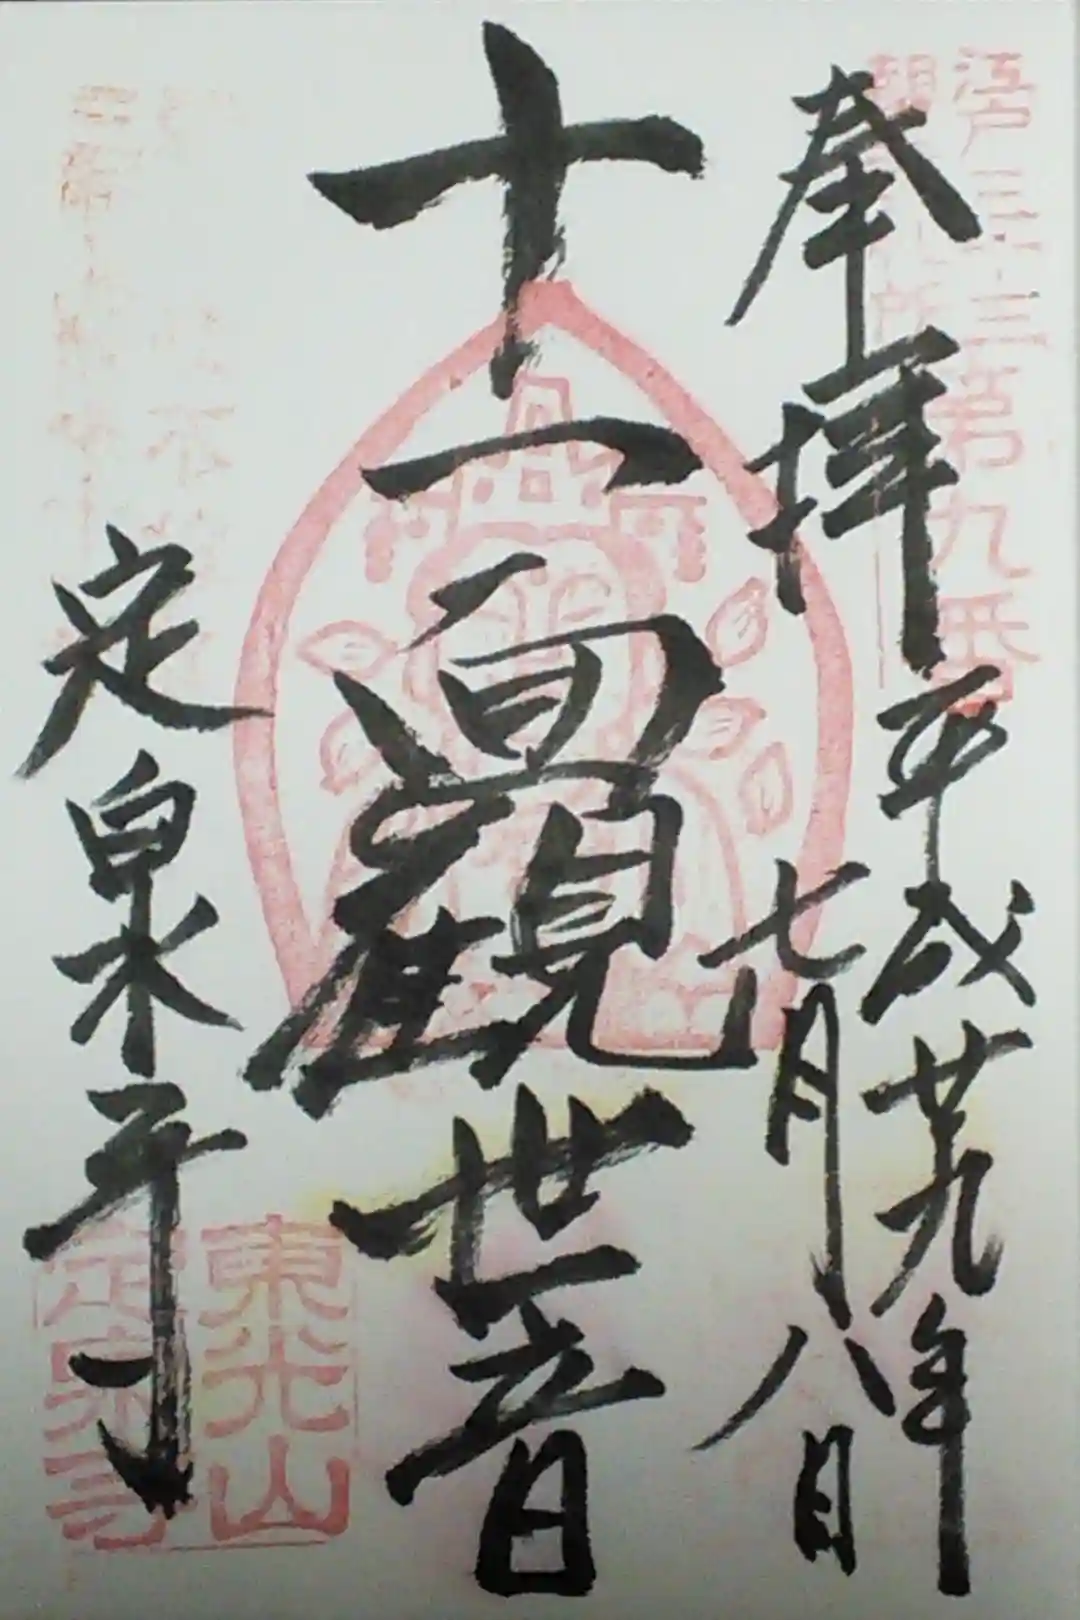 江戸三十三第九番
奉拝
平成廿九年
七月八日
十一面觀世音
定泉寺
東光山
定泉寺